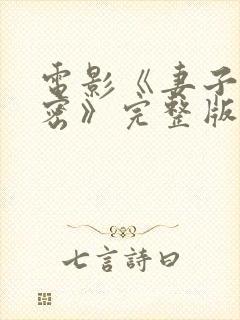 電影《妻子
密》完整版
七言詩曰